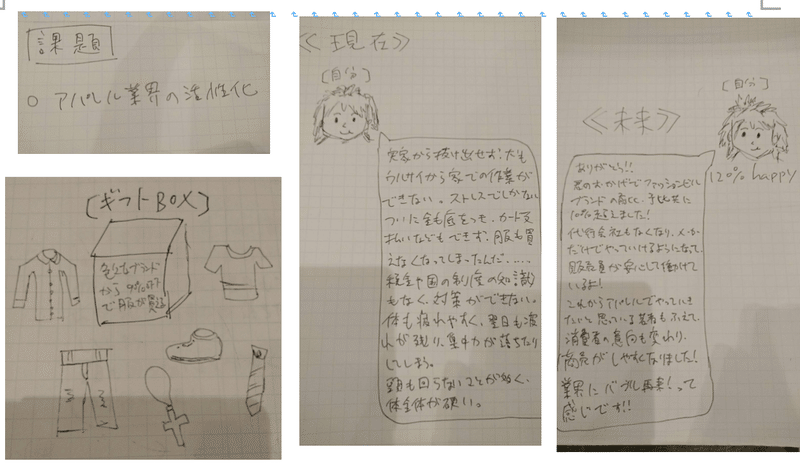 課題
○ アパレル業界の活性化
[ギフトBOX]
色々なブランド
から 90%OFF
で服が買える
≪現在≫
[自分]
実家から抜け出せず、犬も
ウルサイから家での作業が
できない。ストレスでしかない
ついに金も底をつき、カード支
払いなどもできず、服も買
えなくなってしまったんだ……
税金や国の制度の知識
もなく、対策ができない。
体も疲れやすく、翌日も疲
れが残り、集中力が落ちたり
してしまう。
頭も回らないことが多く、
体全体が硬い。
≪未来≫
[自分]
120% happy
ありがとう!!
君のおかげでファッションビル
ブランドの
10%超えました!
代行会社もなくなり、メーカー
だけでやっていけるようになって、
販売員が安心して働けて
いるよ!
これからアパレルでやっていき
たいと思っている若者もふえて、
消費者の意向も変わり、
商売がしやすくなりました!
業界にバブル再来!って
感じです!!